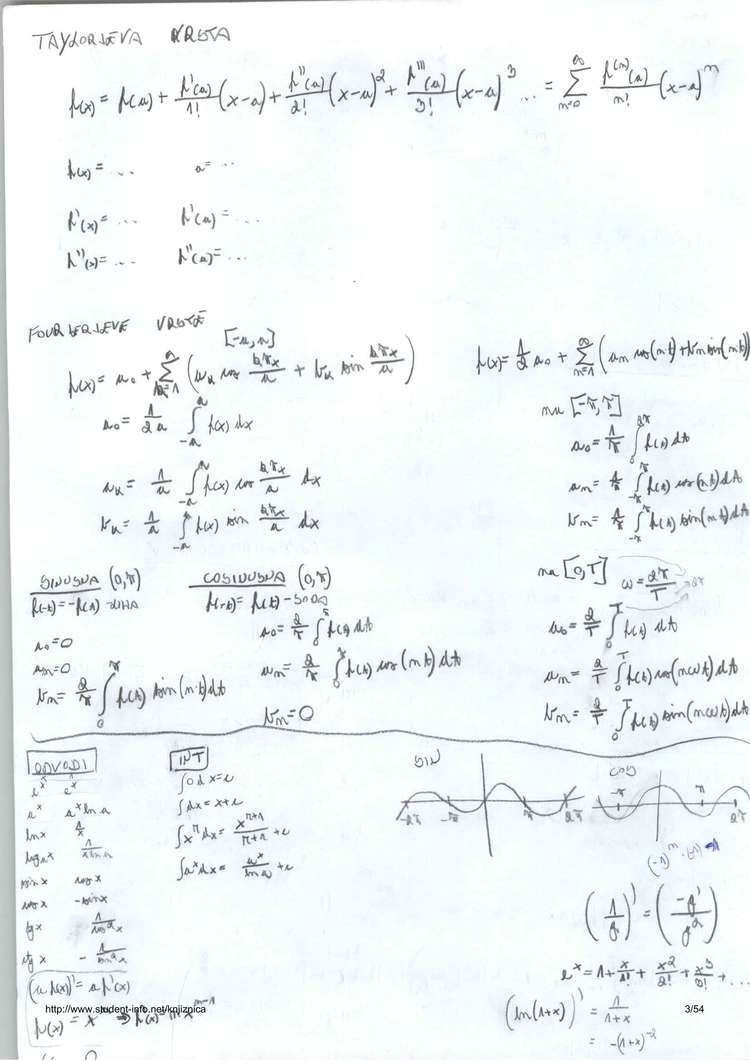 TAYLORJEVA VRSTA
f(x) = f(a) + f'(a)/1! (x-a) + f''(a)/2! (x-a)² + f'''(a)/3! (x-a)³ ... = ∑_{n=0}^{∞} f⁽ⁿ⁾(a)/n! (x-a)ⁿ
f(x) = ... a = ...
f'(x) = ... f'(a) = ...
f''(x) = ... f''(a) = ...
FOURIERJEVE VRSTE
[-a, a]
f(x) = a₀ + ∑_{k=1}^{∞} (aₖ cos kπx/a + bₖ sin kπx/a)
a₀ = 1/2a ∫_{-a}^{a} f(x) dx
aₖ = 1/a ∫_{-a}^{a} f(x) cos kπx/a dx
bₖ = 1/a ∫_{-a}^{a} f(x) sin kπx/a dx
f(x) = 1/2 a₀ + ∑_{n=1}^{∞} (an cos(nt) + bn sin(nt))
na [-π, π]
a₀ = 1/π ∫_{0}^{2π} f(t) dt
an = 1/π ∫_{-π}^{π} f(t) cos(nt) dt
bn = 1/π ∫_{-π}^{π} f(t) sin(nt) dt
SINUSNA (0,π)
f(-t) = -f(t) - LIHA
a₀ = 0
an = 0
bn = 2/π ∫_{0}^{π} f(t) sin(nt) dt
COSINUSNA (0,π)
f(-t) = f(t) - SODA
a₀ = 2/π ∫_{0}^{π} f(t) dt
an = 2/π ∫_{0}^{π} f(t) cos(nt) dt
bn = 0
na [0,T] ω = 2π/T
a₀ = 2/T ∫_{0}^{T} f(t) dt
an = 2/T ∫_{0}^{T} f(t) cos(nωt) dt
bn = 2/T ∫_{0}^{T} f(t) sin(nωt) dt
ODVODI
eˣ eˣ
aˣ aˣ ln a
lnx 1/x
logₐx 1/x ln a
sin x cos x
cos x -sin x
tg x 1/cos²x
ctg x - 1/sin²x
(a f(x))' = a f'(x)
INT
∫0 dx = c
∫dx = x + c
∫xⁿ dx = xⁿ⁺¹/n+1 + c
∫aˣ dx = aˣ/ln a + c
SIN
-2π -π π 2π
COS
-π π 2π
(1/g)' = (-g'/g²)
eˣ = 1 + x/1! + x²/2! + x³/3! + ...
(ln(1+x))' = 1/1+x
= -(1+x)⁻²
http://www.student-info.net/knjiznica
3/54